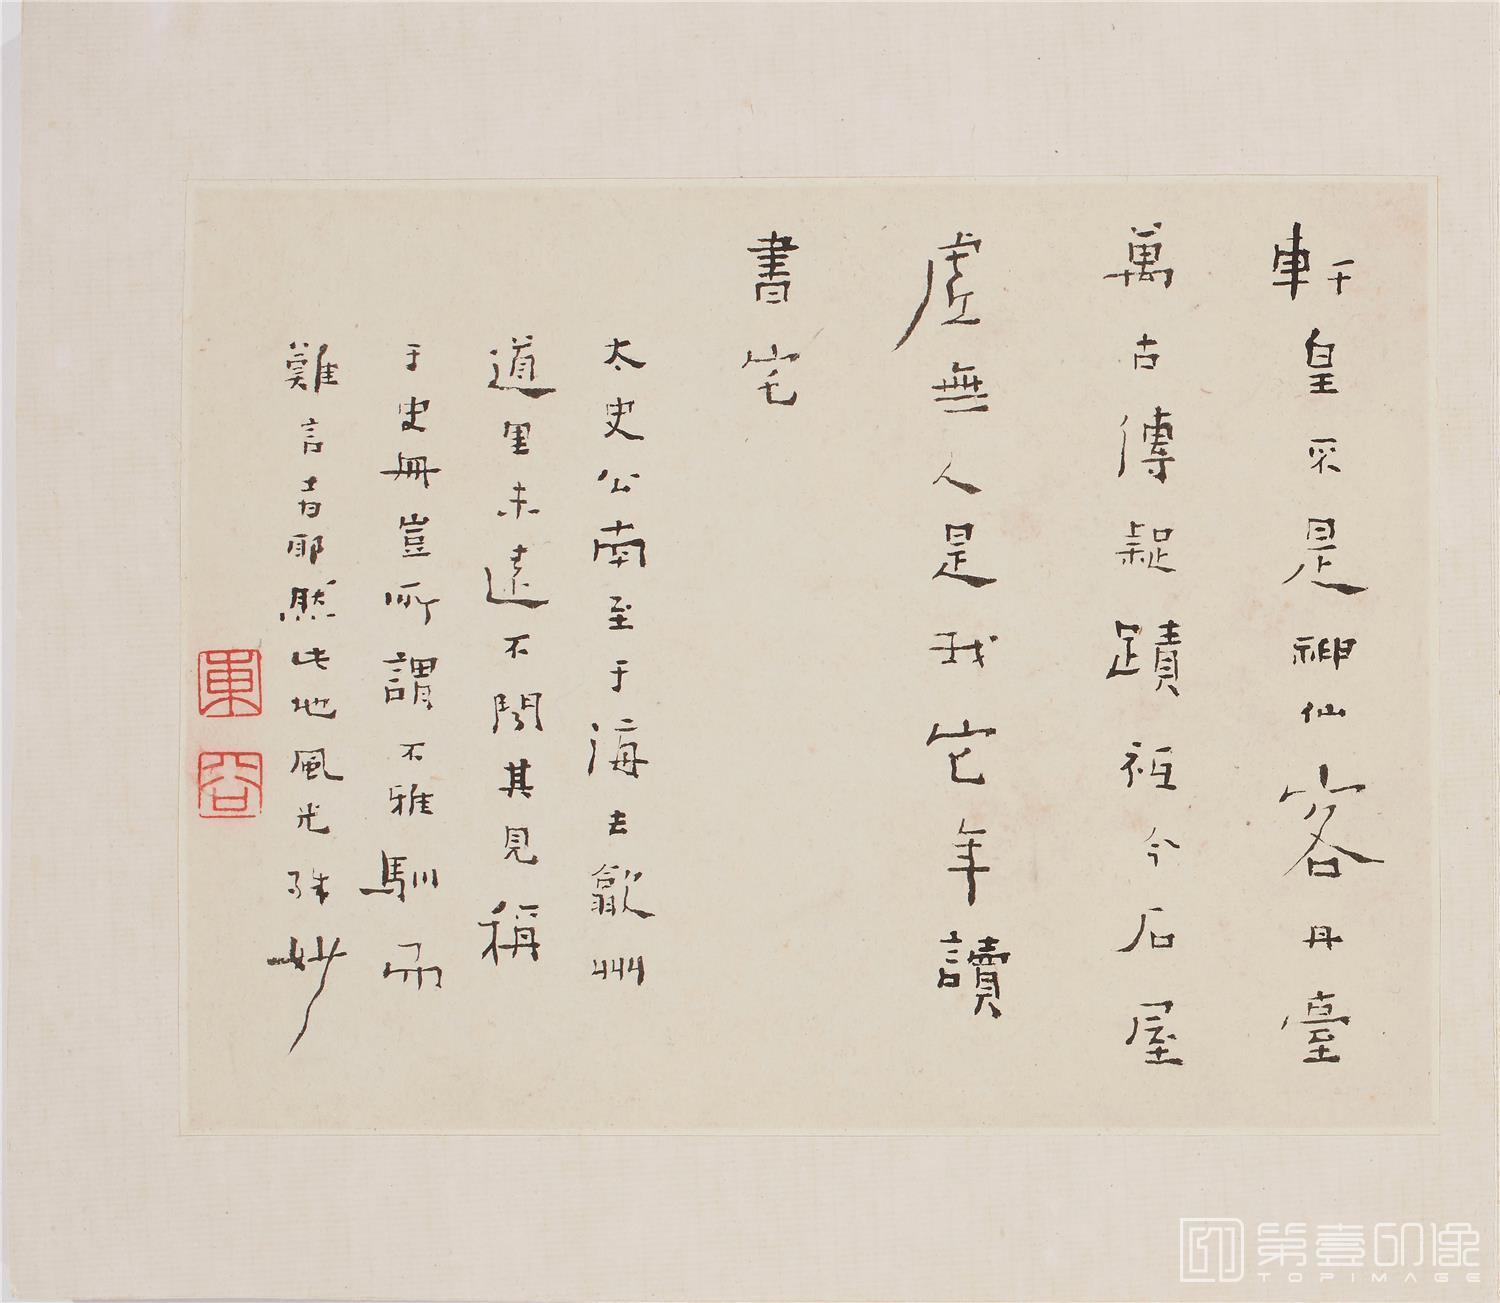 軒皇不是神仙客丹臺
萬古傳疑蹟祗今石屋
虛無人是我它年讀
書宅
太史公南至于海去歙州
道里未遠不聞其見稱
于史冊豈所謂不雅馴而
難言者耶然此地風光殊妙
東
谷
第壹印像
TOPIMAGE